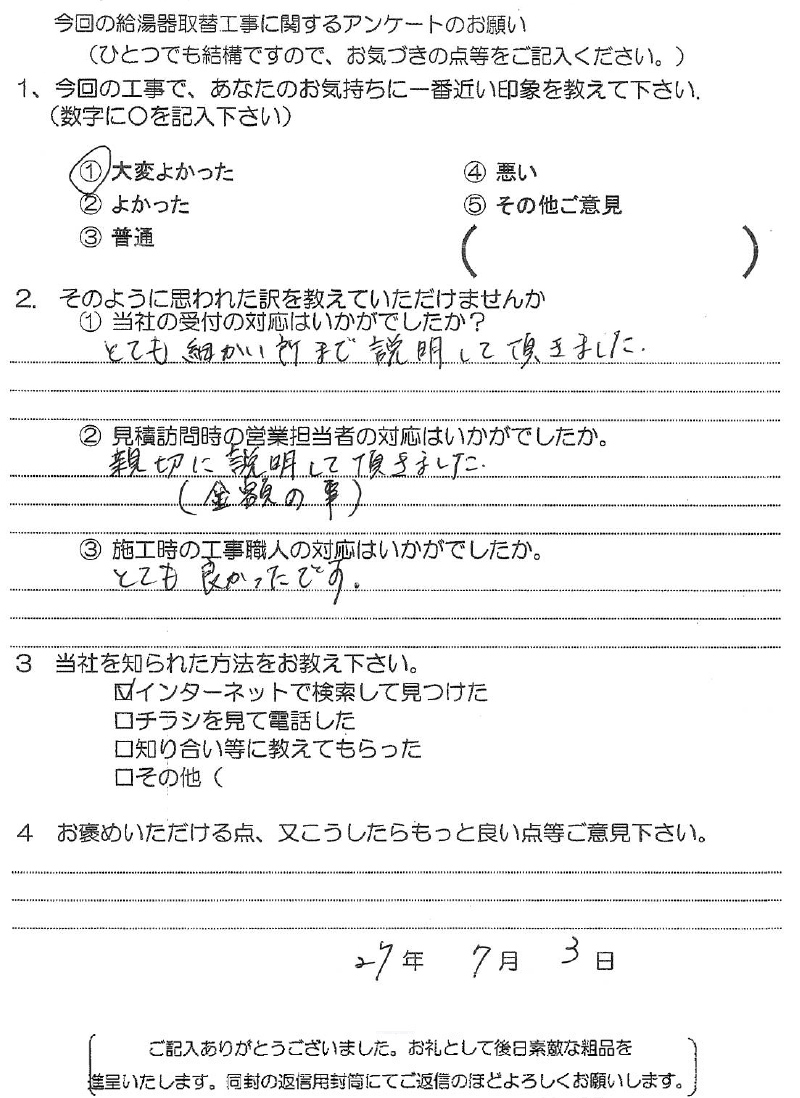 今回の給湯器取替工事に関するアンケートのお願い
（ひとつでも結構ですので、お気づきの点等をご記入ください。）
1、今回の工事で、あなたのお気持ちに一番近い印象を教えて下さい.
（数字に〇を記入下さい）
① 大変よかった ④ 悪い
② よかった ⑤ その他ご意見
③ 普通 （ ）
2. そのように思われた訳を教えていただけませんか
① 当社の受付の対応はいかがでしたか？
とても細かい所まで説明して頂きました.
② 見積訪問時の営業担当者の対応はいかがでしたか。
親切に説明して頂きました.
（金額の事）
③ 施工時の工事職人の対応はいかがでしたか。
とても良かったです。
3 当社を知られた方法をお教え下さい。
☑インターネットで検索して見つけた
□チラシを見て電話した
□知り合い等に教えてもらった
□その他（
4 お褒めいただける点、又こうしたらもっと良い点等ご意見下さい。
27年 7月 3日
ご記入ありがとうございました。お礼として後日素敵な粗品を
進呈いたします。同封の返信用封筒にてご返信のほどよろしくお願いします。